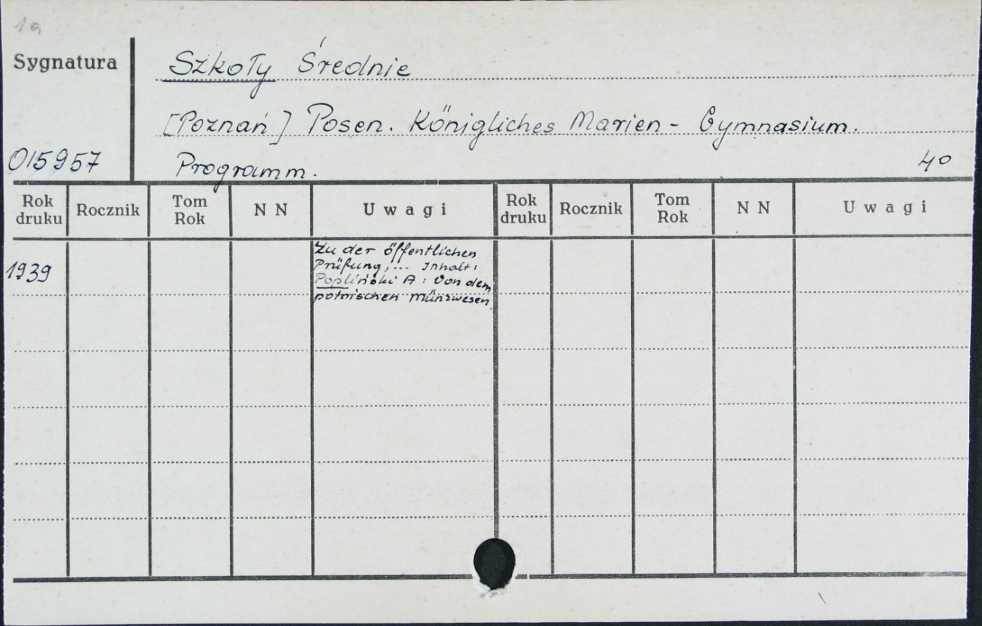 1a
Sygnatura
Szkoły Średnie
[Poznań] Posen. Königliches Marien - Gymnasium.
015957
Programm.
40
Rok druku Rocznik Tom Rok N N Uwagi Rok druku Rocznik Tom Rok N N Uwagi
1939
Zu der öffentlichen
Prüfung,... Inhalt:
Popliński A: Von dem
polnischen Münzwesen